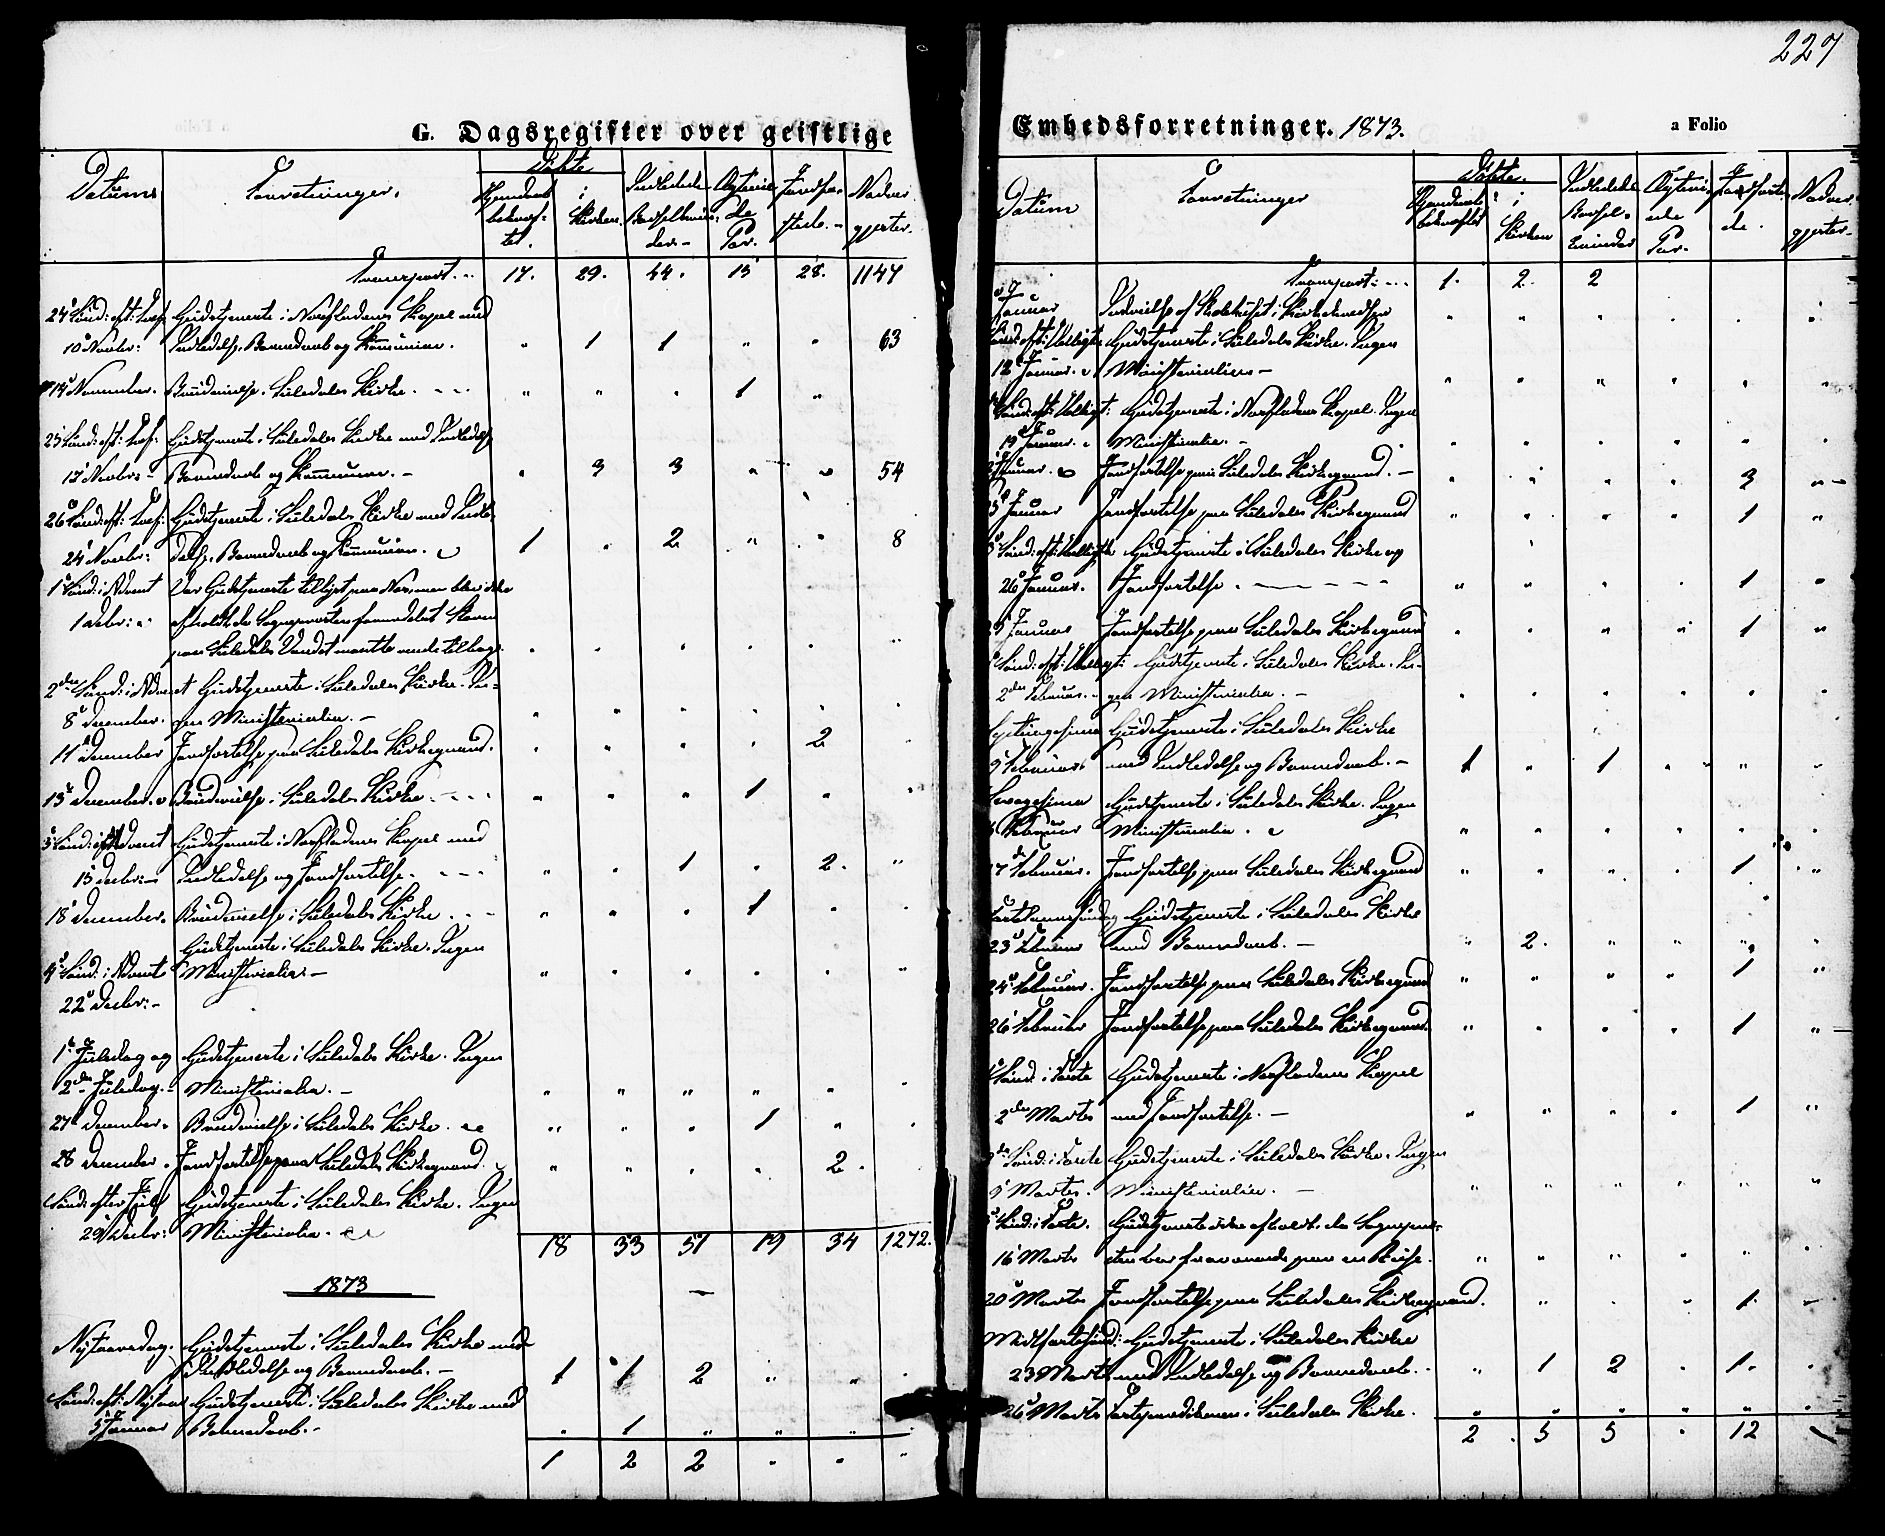 227
G. Dagsregister over geistlige
Datum. Forretninger. Døbte Indledede Ægtevie- Jordfæ- Nadver
Hjemdøbt i Barselkvin- de stede. - gjester.
bekræf- Kirken. der. - Par.
tet.
Transport. 17. 29. 44. 15 28. 1147
24 Sønd: eft: Tref: Gudstjeneste i Næsfladens Kapel med
10 Novbr: Indledelse, Barnedaab og Kommunion. " 1 1 " " 63
14 November. Brudevielse i Suledals Kirke. - - - " " " 1 "
25 Sønd: eft: Tref: Gudstjeneste i Suledals Kirke med Indledelse
17 Novbr: - Barnedaab og Kommunion. - " 3 3 " " 54
26 Sønd: eft: Tref: Gudstjeneste i Suledals Kirke med Indle-
24 Novbr: delse, Barnedaab og Kommunion. 1 " 2 " " 8
1 Sønd: i Advent Var Gudstjeneste tillyst paa Næs, men blev ikke
1 Decbr: afholdt, da Sognepræsten formedelst Storm
paa Suledals Vandet maatte vende tilbage. " " " " " "
2den Sønd: i Advent Gudstjeneste i Suledals Kirke. In-
8 December. gen Ministerialia. - " " " " " "
11 December Jordfæstelse paa Suledals Kirkegaard. " " " " 2 "
13 December. Brudevielse i Suledals Kirke. - - - " " " 1 " "
3 Sønd: i Advent Gudstjeneste i Næsfladens Kapel med
15 Decbr: Indledelse og Jordfæstelse. - - - " " 1 " 2. "
18 December. Brudevielse i Suledals Kirke. - - " " " 1 " "
Gudstjeneste i Suledals Kirke. Ingen
4 Sønd: i Advent Ministerialia - " " " " " "
22 Decbr: -
1 Juledag og Gudstjeneste i Suledals Kirke. Ingen
2den Juledag. - Ministerialia. - " " " " " "
27 December. Brudevielse i Suledals Kirke. " " " 1 " "
28 December. Jordfæstelse paa Suledals Kirkegaard. " " " " 2.
Sønd: efter Juul Gudstjeneste i Suledals Kirke. Ingen
29 Decbr: Ministerialia.
18 33 51 19 34 1272.
1873
Nytaarsdag. Gudstjeneste i Suledals Kirke med
Indledelse og Barnedaab. - 1 1 2 " " "
Sønd: eft: Nytaar Gudstjeneste i Suledals Kirke med
5 Januar Barnedaab. - " 1 " " " "
1 2 2 " " "
Embedsforretninger. 1873. a Folio
Datum Forretninger Døbte. Indledede Ægtevi- Jordfæste- Nadver-
Hjemdøbt i Barsel- ede de. gjester.
bekræftet Kirken kvinder Par.
Transport: - - - 1. 2. 2
Januar Indvielse af Skolehuset i " " " " " "
Sønd: eft: Helligtr: Gudstjeneste i Suledals Kirke. Ingen
12 Januar. Ministerialia - " " " " " "
Sønd: eft: Helligt: Gudstjeneste i Næsfladens Kapel. Ingen
19 Januar. Ministerialia. - " " " " " "
Januar. Jordfæstelse paa Suledals Kirkegaard. - " " " " 3 "
Januar Jordfæstelse paa Suledals Kirkegaard " " " " 1 "
Sønd: eft: Helligtr: Gudstjeneste i Suledals Kirke og
26 Januar. Jordfæstelse. - - - - " " " " 1 "
29 Januar Jordfæstelse paa Suledals Kirkegaard " " " " 1 "
Sønd: eft: Helligt: Gudstjeneste i Suledals Kirke. In-
2den Februar. gen Ministerialia. - " " " " " "
Septuagesima Gudstjeneste i Suledals Kirke
9 Februar. med Indledelse og Barnedaab. - 1 " 1 " " "
Sexagesima Gudstjeneste i Suledals Kirke. Ingen
Februar Ministerialia. " " " " " "
17 Februar. Jordfæstelse paa Suledals Kirkegaard " " " " 1 "
Fastelavnssøndag Gudstjeneste i Suledals Kirke
23 Februar med Barnedaab. - " 2. " " " "
24 Februar. Jordfæstelse paa Suledals Kirkegaard " " " " 1 "
26 Februar Jordfæstelse paa Suledals Kirkegaard. " " " " 1 "
Sønd: i Faste Gudstjeneste i Næsfladens Kapel
2den Marts med Jordfæstelse. - " " " " 1 "
Sønd: i Faste Gudstjeneste i Suledals Kirke. Ingen
Marts. Ministerialia. - " " " " " "
Sønd: i Faste. Gudstjeneste ikke afholdt, da Sognepræ-
16 Marts sten var fraværende paa en Reise. " " " " " "
20 Marts Jordfæstelse paa Suledals Kirkegaard. " " " 1. "
Midfastesønd: Gudstjeneste i Suledals Kirke
23 Marts med Indledelse og Barnedaab. " 1 2 " 1. "
26 Marts Fasteprædiken i Suledals Kirke. " " " " " "
2 5 5 " 12 1